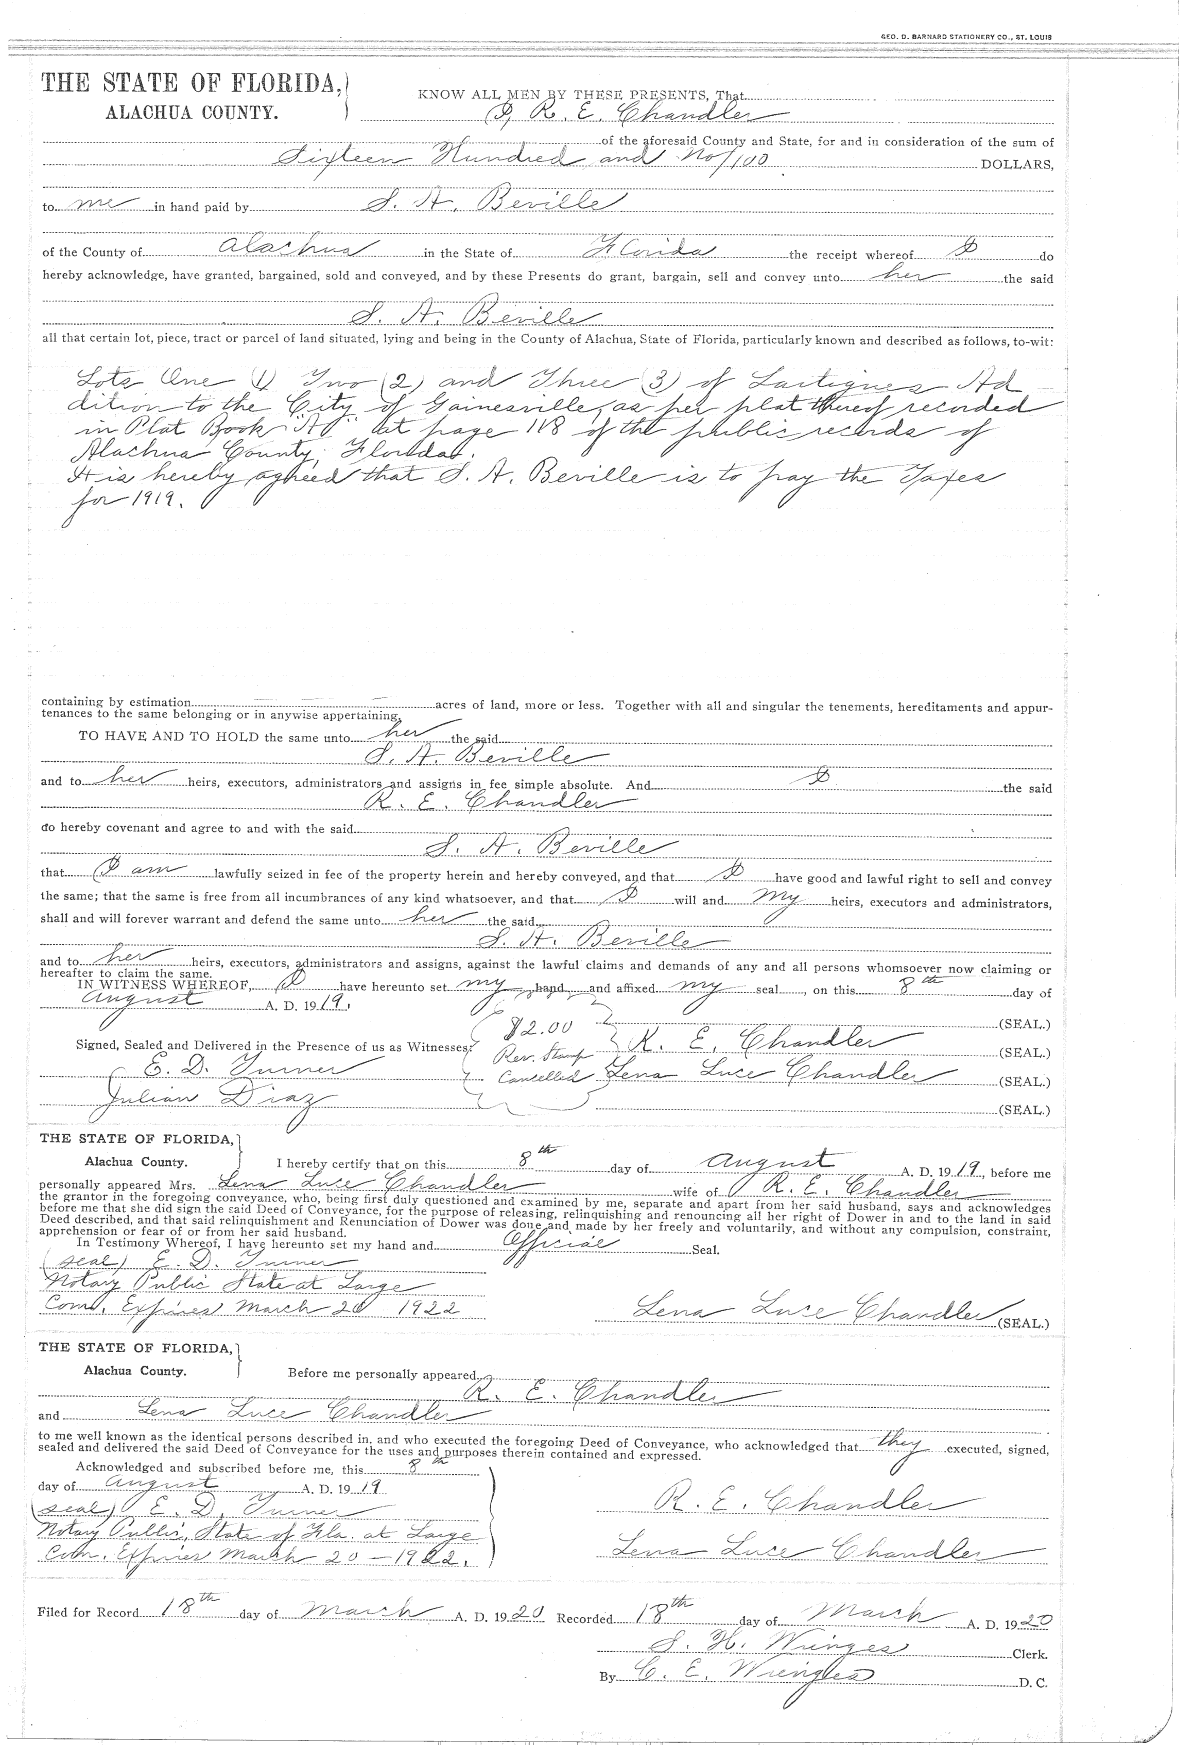 GEO. D. BARNARD STATIONERY CO., ST. LOUIS
THE STATE OF FLORIDA,
ALACHUA COUNTY.
KNOW ALL MEN BY THESE PRESENTS, That
I, R. E. Chandler
of the aforesaid County and State, for and in consideration of the sum of
Sixteen Hundred and No/100 DOLLARS,
to me in hand paid by S. A. Beville
of the County of Alachua in the State of Florida the receipt whereof I do
hereby acknowledge, have granted, bargained, sold and conveyed, and by these Presents do grant, bargain, sell and convey unto her the said
S. A. Beville
all that certain lot, piece, tract or parcel of land situated, lying and being in the County of Alachua, State of Florida, particularly known and described as follows, to-wit:
Lots One (1) Two (2) and Three (3) of Lartigues Ad
dition to the City of Gainesville, as per plat thereof recorded
in Plat Book "A" at page 118 of the public records of
Alachua County, Florida.
It is hereby agreed that S. A. Beville is to pay the Taxes
for 1919.
containing by estimation acres of land, more or less. Together with all and singular the tenements, hereditaments and appur-
tenances to the same belonging or in anywise appertaining,
TO HAVE AND TO HOLD the same unto her the said
S. A. Beville
and to her heirs, executors, administrators and assigns in fee simple absolute. And I the said
R. E. Chandler
do hereby covenant and agree to and with the said
S. A. Beville
that I am lawfully seized in fee of the property herein and hereby conveyed, and that I have good and lawful right to sell and convey
the same; that the same is free from all incumbrances of any kind whatsoever, and that I will and my heirs, executors and administrators,
shall and will forever warrant and defend the same unto her the said
S. A. Beville
and to her heirs, executors, administrators and assigns, against the lawful claims and demands of any and all persons whomsoever now claiming or
hereafter to claim the same.
IN WITNESS WHEREOF, I have hereunto set my hand and affixed my seal, on this 8th day of
August A. D. 1919.
(SEAL.)
$2.00 R. E. Chandler (SEAL.)
Signed, Sealed and Delivered in the Presence of us as Witnesses: Rev. Stamp
E. D. Turner Cancelled Lena Luce Chandler (SEAL.)
Julian Diaz (SEAL.)
THE STATE OF FLORIDA,
Alachua County. I hereby certify that on this 8th day of August A. D. 1919, before me
personally appeared Mrs. Lena Luce Chandler wife of R. E. Chandler
the grantor in the foregoing conveyance, who, being first duly questioned and examined by me, separate and apart from her said husband, says and acknowledges
before me that she did sign the said Deed of Conveyance, for the purpose of releasing, relinquishing and renouncing all her right of Dower in and to the land in said
Deed described, and that said relinquishment and Renunciation of Dower was done and made by her freely and voluntarily, and without any compulsion, constraint,
apprehension or fear of or from her said husband.
In Testimony Whereof, I have hereunto set my hand and Official Seal.
(seal) E. D. Turner
Notary Public State at Large
Com. Expires March 20 1922 Lena Luce Chandler (SEAL.)
THE STATE OF FLORIDA,
Alachua County. Before me personally appeared
R. E. Chandler
and Lena Luce Chandler
to me well known as the identical persons described in, and who executed the foregoing Deed of Conveyance, who acknowledged that they executed, signed,
sealed and delivered the said Deed of Conveyance for the uses and purposes therein contained and expressed.
Acknowledged and subscribed before me, this 8th
day of August A. D. 1919
(seal) E. D. Turner R. E. Chandler
Notary Public, State of Fla. at Large
Com. Expires March 20 - 1922. Lena Luce Chandler
Filed for Record 18th day of March A. D. 1920 Recorded 18th day of March A. D. 1920
S. H. Wienges Clerk.
By C. E. Wienges D. C.